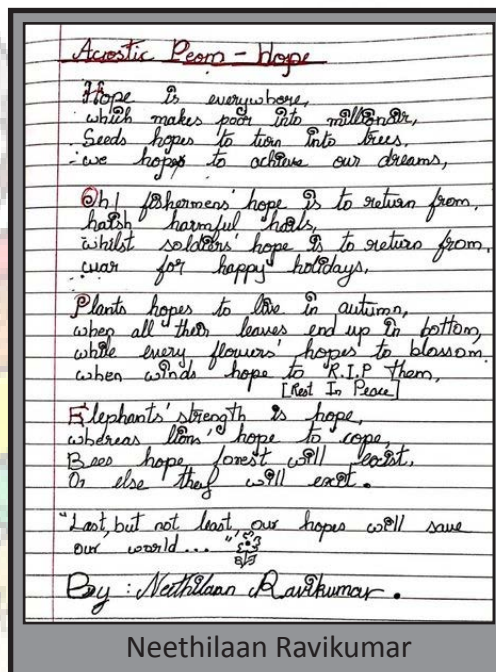 Acrostic Peom - Hope
Hope is everywhere,
which makes poor into millionair,
Seeds hopes to turn into trees,
we hopes to achieve our dreams,
Oh! fishermens' hope is to return from,
harsh harmful hails,
whilst soldiers' hope is to return from,
war for happy holidays,
Plants hopes to live in autumn,
when all their leaves end up in bottom,
while every flowers' hopes to blossom
when winds hope to R.I.P them,
[Rest In Peace]
Elephants' strength is hope,
whereas lions' hope to cope,
Bees hope forest will exist,
Or else they will exit.
"Last, but not least, our hopes will save
our world..."
By: Neethilaan Ravikumar.
Neethilaan Ravikumar